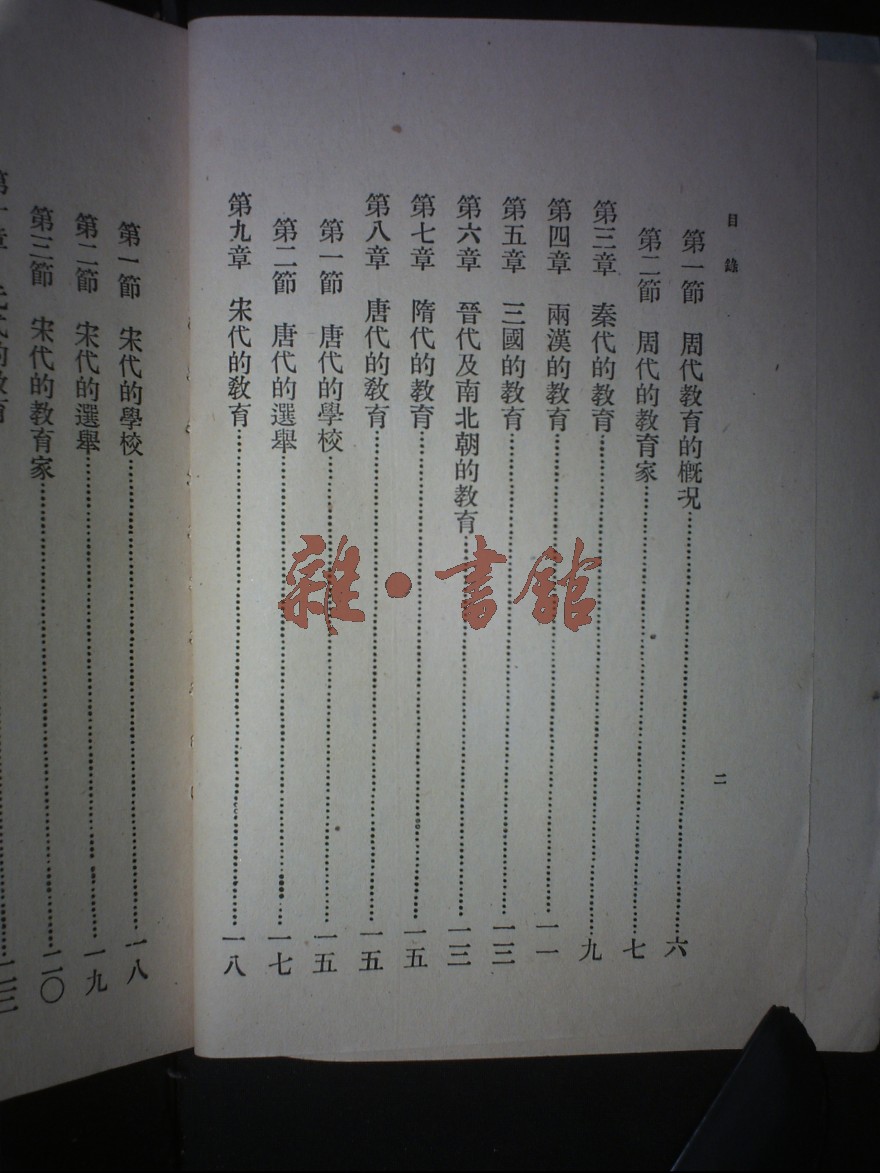 目錄
第一節 周代教育的概况……六
第二節 周代的教育家……七
第三章 秦代的教育……九
第四章 兩漢的教育……一一
第五章 三國的教育……一三
第六章 晉代及南北朝的教育……一三
第七章 隋代的教育……一五
第八章 唐代的教育……一五
第一節 唐代的學校……一五
第二節 唐代的選舉……一七
第九章 宋代的教育……一八
二
第一節 宋代的學校……一八
第二節 宋代的選舉……一九
第三節 宋代的教育家……二〇
雜·書館